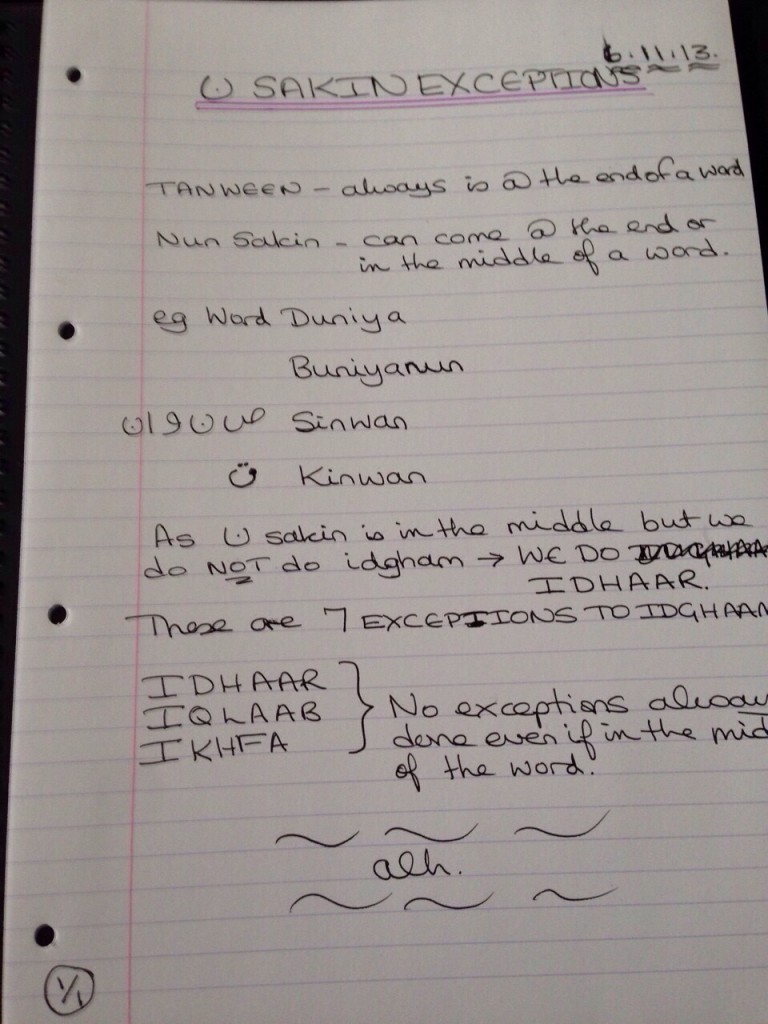 6.11.13.
ن SAKIN EXCEPTIONS
TANWEEN - always is @ the end of a word
Nun Sakin - can come @ the end or
in the middle of a word.
eg Word Duniya
Buniyanun
صنوان Sinwan
ق Kinwan
As ن sakin is in the middle but we
do NOT do idgham → WE DO
IDHAAR.
These are 7 EXCEPTIONS TO IDGHAAM
IDHAAR
IQLAAB
IKHFA
No exceptions always
done even if in the mid
of the word.
alh.
1/1